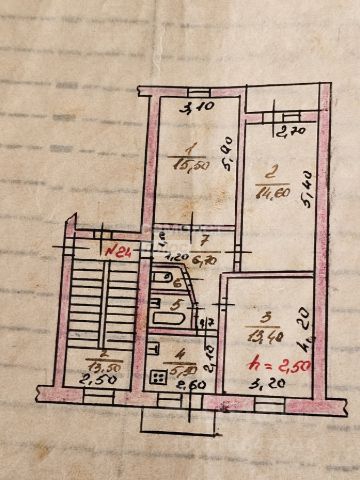 3,10
2,70
1
15,50
5,00
2
14,60
5,40
7
6,70
1,20
N24
6
5
3
13,40
4,20
h = 2,50
3,20
4
5,50
2,10
2,60
2
13,50
2,50